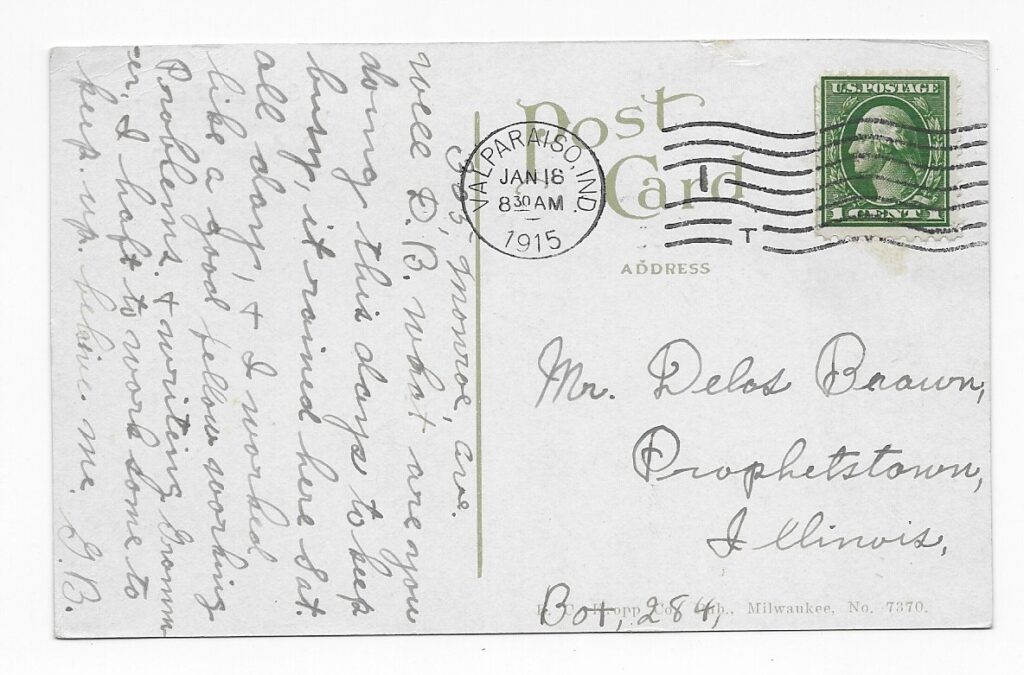 Post
Card
VALPARAISO, IND.
JAN 18
8 30 AM
1915
1
T
U.S. POSTAGE
1 CENT 1
ADDRESS
Monroe, ave.
Well D. B. what are you
doing this days to keep
busy, it rained here Sat.
all day, & I worked
like a good fellow working
Problems. & writing Gramm
-er, I haft to work some to
keep. up. belive. me. G.B.
Mr. Delos Brown,
Prophetstown,
Illinois,
Box, 284,
Milwaukee, No. 7370.